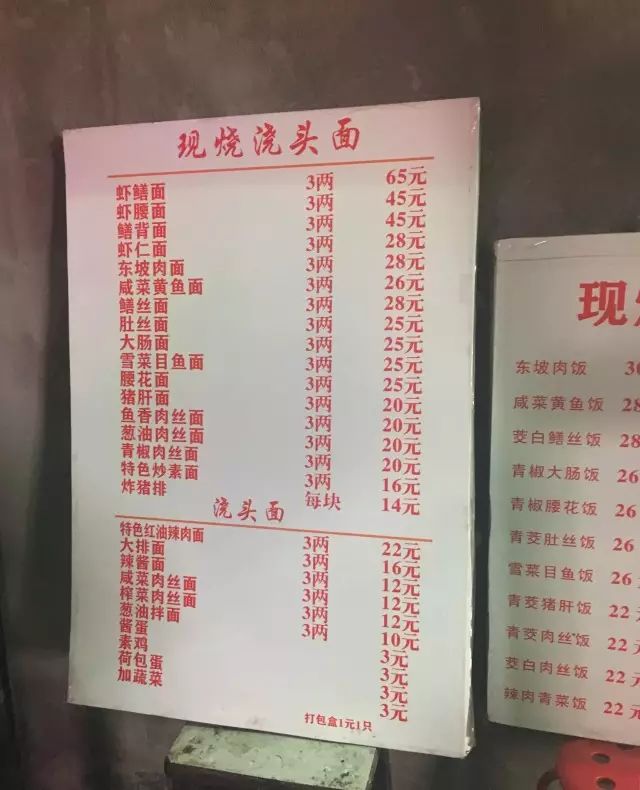 现烧浇头面
虾鳝面 3两 65元
虾腰面 3两 45元
鳝背面 3两 45元
虾仁面 3两 28元
东坡肉面 3两 28元
咸菜黄鱼面 3两 26元
鳝丝面 3两 28元
肚丝面 3两 25元
大肠面 3两 25元
雪菜目鱼面 3两 25元
腰花面 3两 25元
猪肝面 3两 20元
鱼香肉丝面 3两 20元
葱油肉丝面 3两 20元
青椒肉丝面 3两 20元
特色炒素面 3两 16元
炸猪排 每块 14元
浇头面
特色红油辣肉面 3两 22元
大排面 3两 16元
辣酱面 3两 12元
咸菜肉丝面 3两 12元
榨菜肉丝面 3两 12元
葱油拌面 3两 10元
酱蛋 3元
素鸡 3元
荷包蛋 3元
加蔬菜 3元
打包盒1元1只
现
东坡肉饭 30
咸菜黄鱼饭 28
茭白鳝丝饭 28
青椒大肠饭 26
青椒腰花饭 26
青茭肚丝饭 26
雪菜目鱼饭 26
青茭猪肝饭 22元
青茭肉丝饭 22元
茭白肉丝饭 22元
辣肉青菜饭 22元